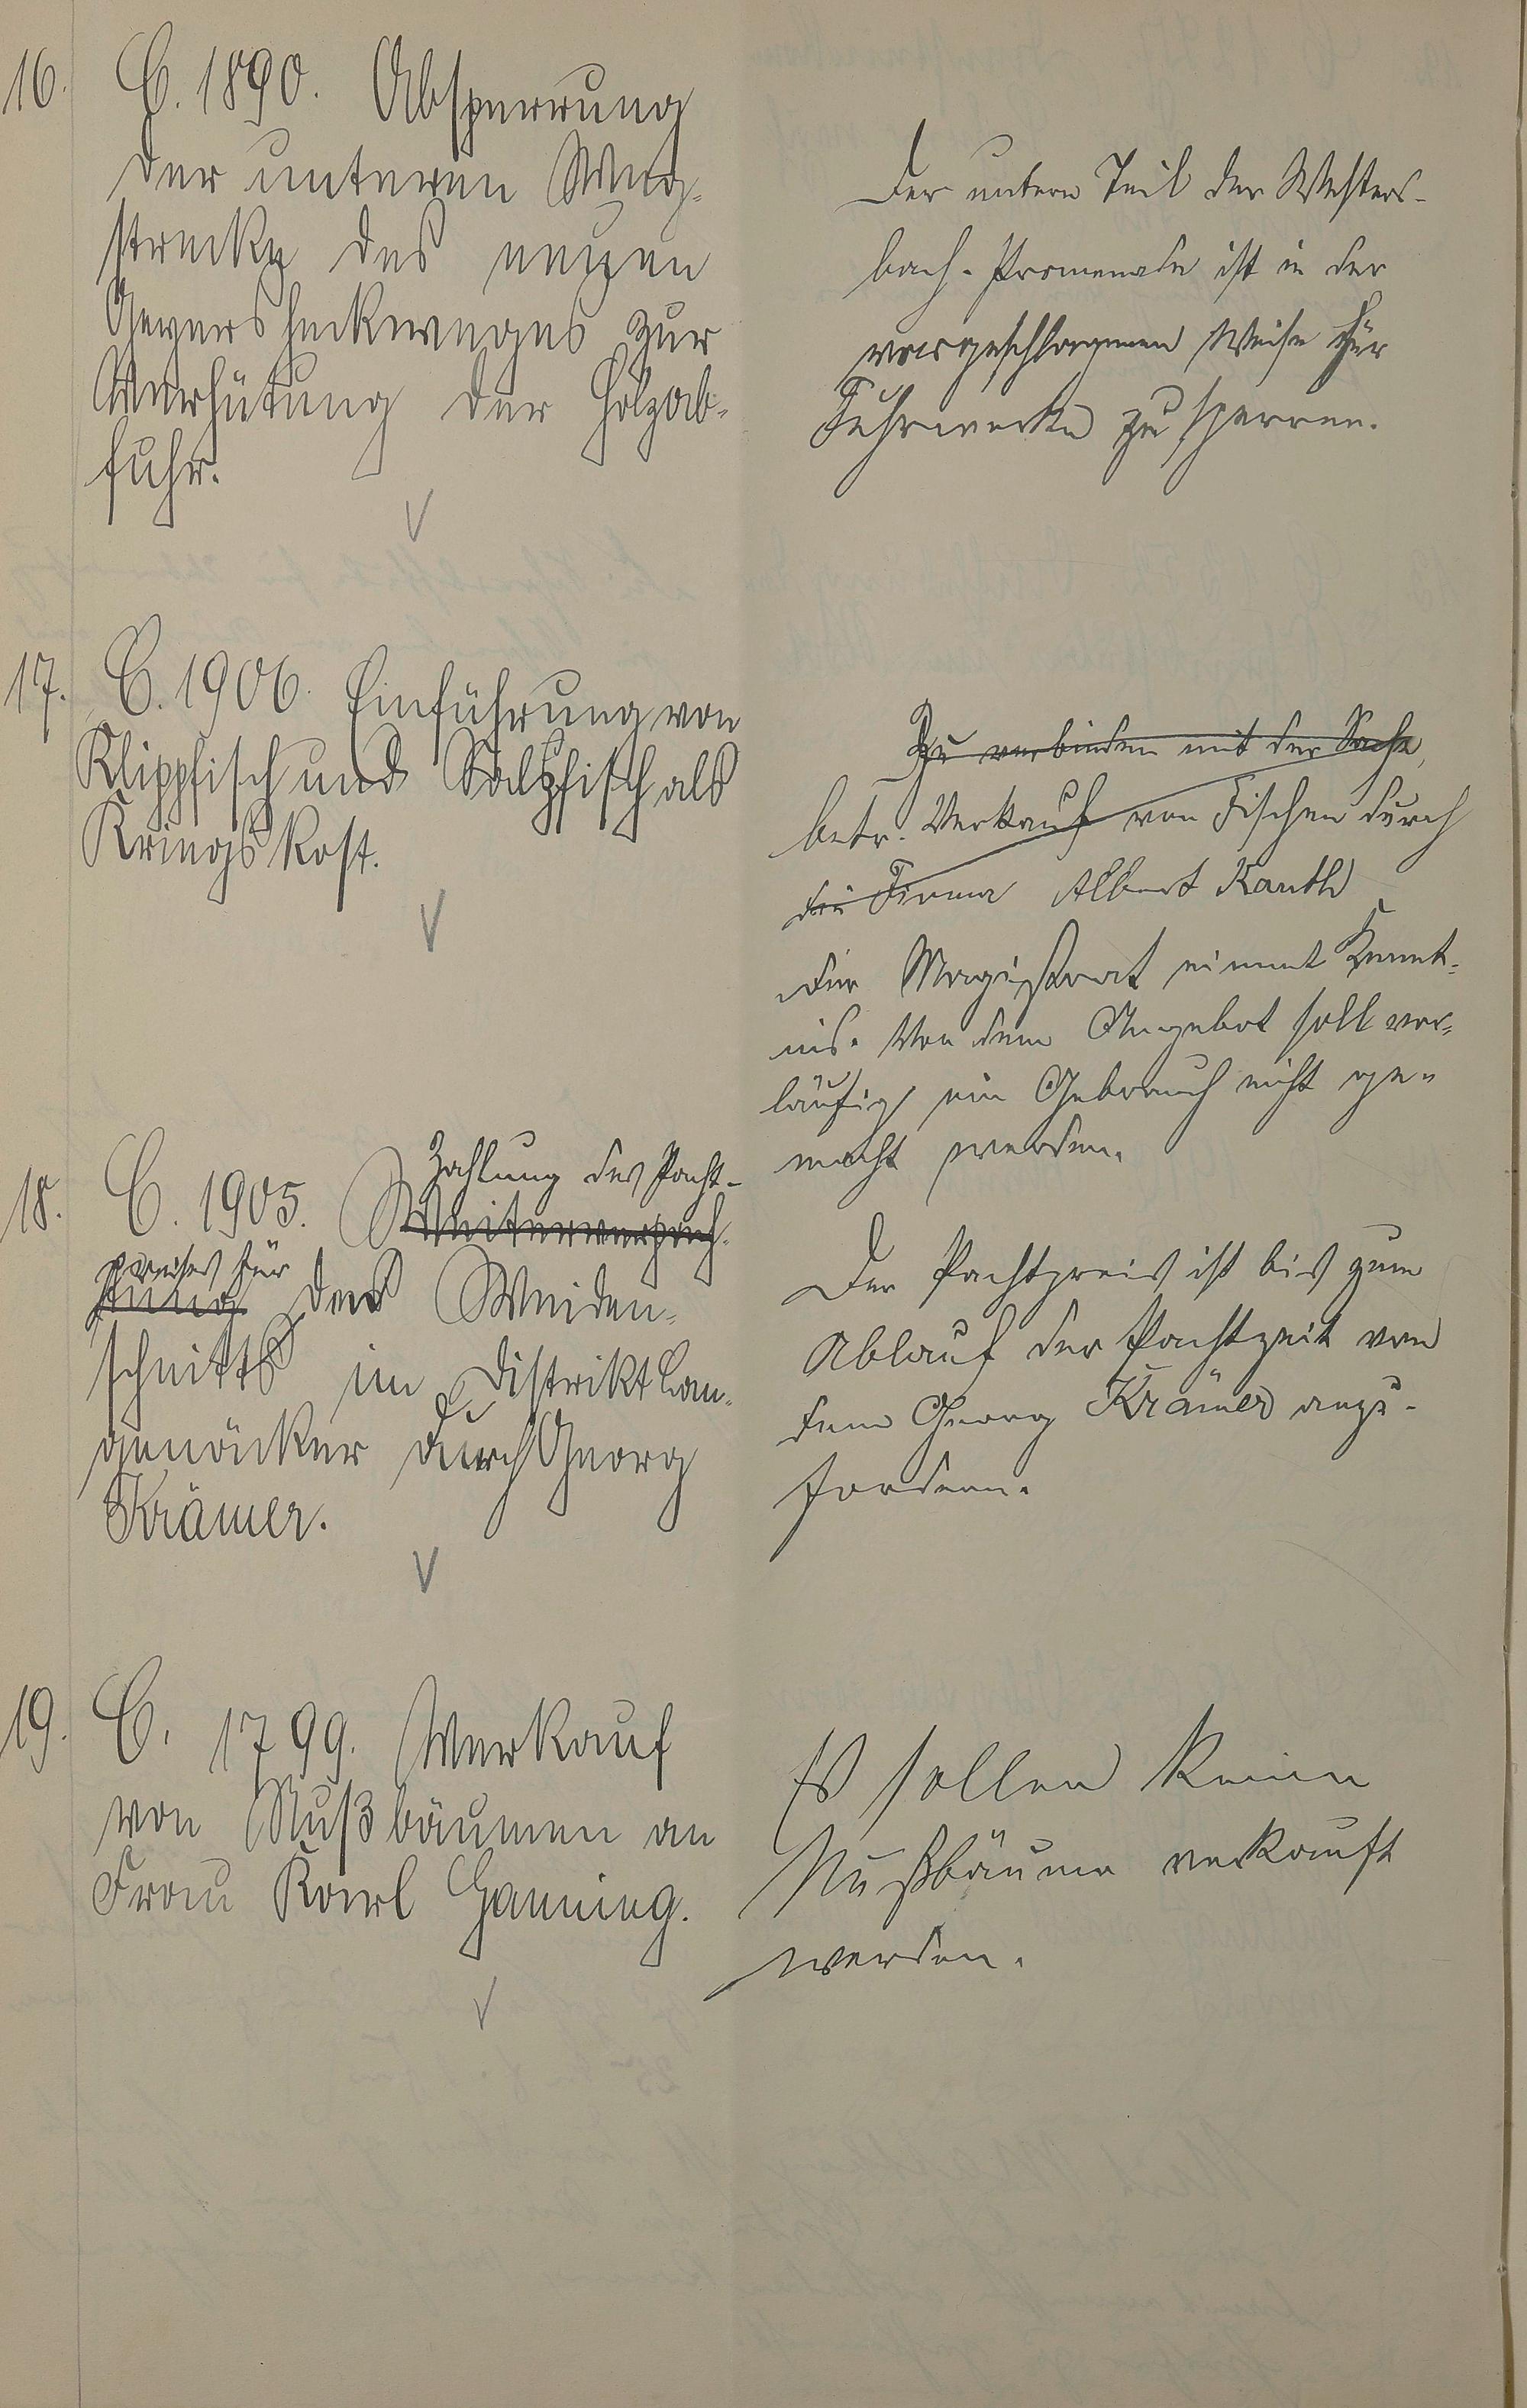 16. C. 1890. Absperrung
der unteren Weg-
strecke des neuen
Geyersheckweges zur
Verhütung der Holzab-
fuhr.
Der untere Teil der Westers-
bach-Promenade ist in der
vorgeschlagenen Weise für
Fuhrwerke zu sperren.
17. C. 1906. Einführung von
Klippfisch und Salzfisch als
Kriegskost.
Zu verbinden mit der Sache,
betr. Verkauf von Fischen durch
die Firma Albert Kauth
Der Magistrat nimmt Kennt-
nis. Von dem Angebot soll vor-
läufig ein Gebrauch nicht ge-
macht werden.
18. C. 1905. Zahlung des Pacht-
Weiterverpach-
preises für
tung des Weiden-
schnitts im Distrikt Lan-
genäcker durch Georg
Krämer.
Der Pachtpreis ist bis zum
Ablauf der Pachtzeit von
dem Georg Krämer anzu-
fordern.
19. C. 1799. Verkauf
von Nußbäumen an
Frau Karl Hanning.
Es sollen keine
Nußbäume verkauft
werden.